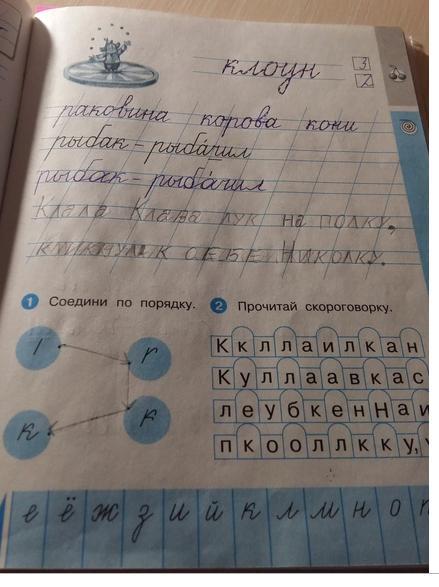 клоун
3
2
раковина корова кони
рыбак – рыбачил
рыбак – рыбачил
Клала Клава лук на полку,
кликнула к себе Николку.
1 Соедини по порядку.
2 Прочитай скороговорку.
I г
к к
К к л л а и л к а н
К у л л а а в к а с
л е у б к е н Н а и
п к о о л л к к у,
е ё ж з и й к л м н о п